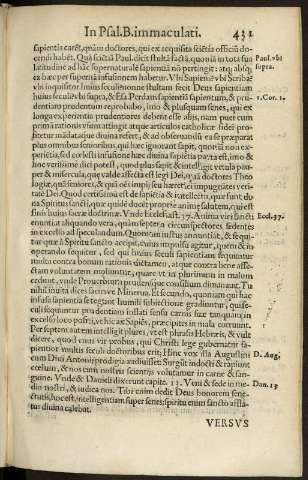 In Psal. B. immaculati. 431
sapientia carēt, quàm doctores, qui ex acquisita sciētia officiū do-
cendi habēt. Quā sciētiā Paul. dicit stultā factā, quoniā in tota sua
latitudine ad hāc supernaturalē sapientiā nō pertingit: atq; absq;
ea hæc per supernā infusionem habetur. Vbi Sapiens? vbi Scribæ?
vbi inquisitor huius seculi? nonne stultam fecit Deus sapientiam
huius seculi? vbi supra, & Esa. Perdam sapientiā sapientum, & pru-
dentiam prudentum reprobabo, ideo & plusquam senes, qui ex
longa experientia prudentiores debent esse alijs, nam puer cum
primā rationis viuē attingit atque articulos catholicæ fidei pro-
fitetur mādataque diuina refert, & ad obseruādū ea se præparat
plus omnibus senioribus, qui hæc ignorant sapit, quoniā non ex-
perietia, sed cœlesti infusione hæc diuina sapiētia parta est, imo &
hoc verissimè dici potest, quod plus sapit & intelligit vetula pau-
per & misercula, que valdè affecta est legi Dei, quā doctores Theo-
logiæ, quā seniores, & quā oēs impij seu hæretici impugnātes veri-
tatē Dei. Quod certissimū est de sapiētia & ītellectu, quæ sunt do-
na Spiritus sancti, quæ quidē docēt propriè animæ salutem, quæ est
finis huius sacræ doctrinæ. Vnde Ecclesiast. 37. Anima viri sancti
enuntiat aliquando vera, quàm septem circunspectores sedentes
in excelso ad speculandum. Quoniam iustus annuntiat, & sequi-
tur quæ à Spiritu sancto accepit, cuius impulsu agitur, quem & in
operando sequitur, sed qui huius seculi sapientiam sequuntur
multa contra bonam rationis dictamen, atque contra bene affe-
ctam voluntatem moliuntur, quare vt in plurimum in malum
cedunt, vnde Prouerbium prudensque consilium dimanauit. Tu
nihil inuita dices faciesve Minerua. Et secundo, quoniam qui hac
infusa sapientia se tegant humili subiectione gradiuntur, quā se-
culi sequuntur prudentiam inflati sensu carnis suæ tanquam in
excelso loco positi, vt hic ait Sapiēs, præcipites in mala corruunt.
Per septem autem intelligit plures, vt est phrasis Hebræis, & vult
dicere, quod vnus vir probus, qui Christi lege gubernatur sa-
pientior multis seculi doctoribus erit, Hinc vox illa Augustini
cum Diui Antonij prodigia audiuisset: Surgūt indocti & rapiunt
cœlum, & nos cum nostris scientijs volutamur in carne & san-
guine. Vnde & Danieli dixerunt capite. 13. Veni & sede in me-
dio nostri, & iudica nos. Tibi enim dedit Deus honorem sene-
ctutis, hoc est, intelligentiam super senes: spiritu enim sancto affla-
tur diuina calebat.
VERSVS
Paul. vbi
supra.
1. Cor. 1.
Eccl. 37.
D. Aug.
Dan. 13